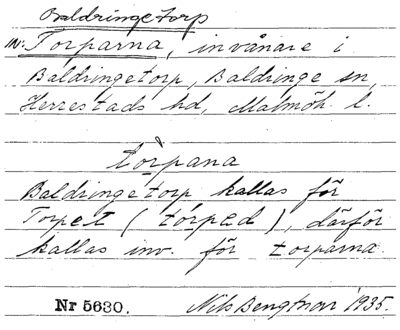 Baldringetorp
IN: Torparna, invånare i
Baldringetorp, Baldringe sn,
Herrestads hd, Malmöh. l.
tòrpana
Baldringetorp kallas för
Torpet (tórpəd), därför
kallas inv. för torparna
Nr 5630. Nils Bengtsson 1935.